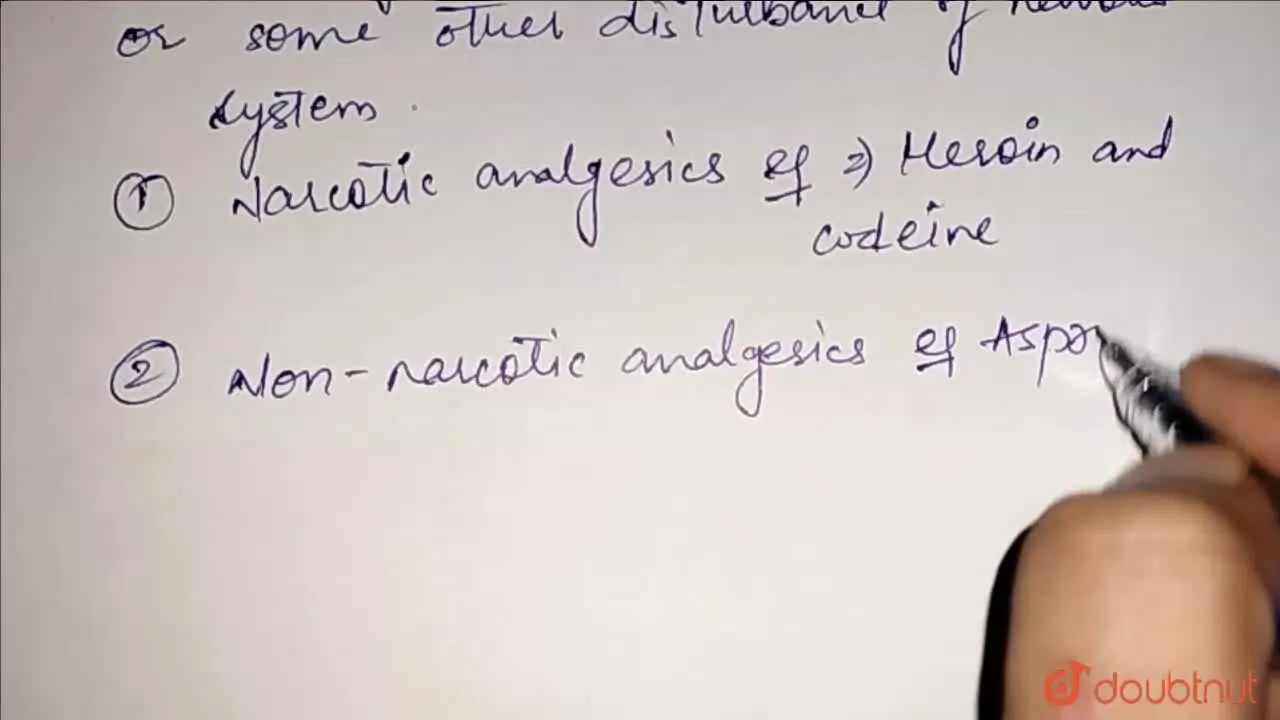 or some other disturbance of
system.
① Narcotic analgesics eg ⇒ Heroin and
codeine
② Non-narcotic analgesics eg Asp
doubtnut